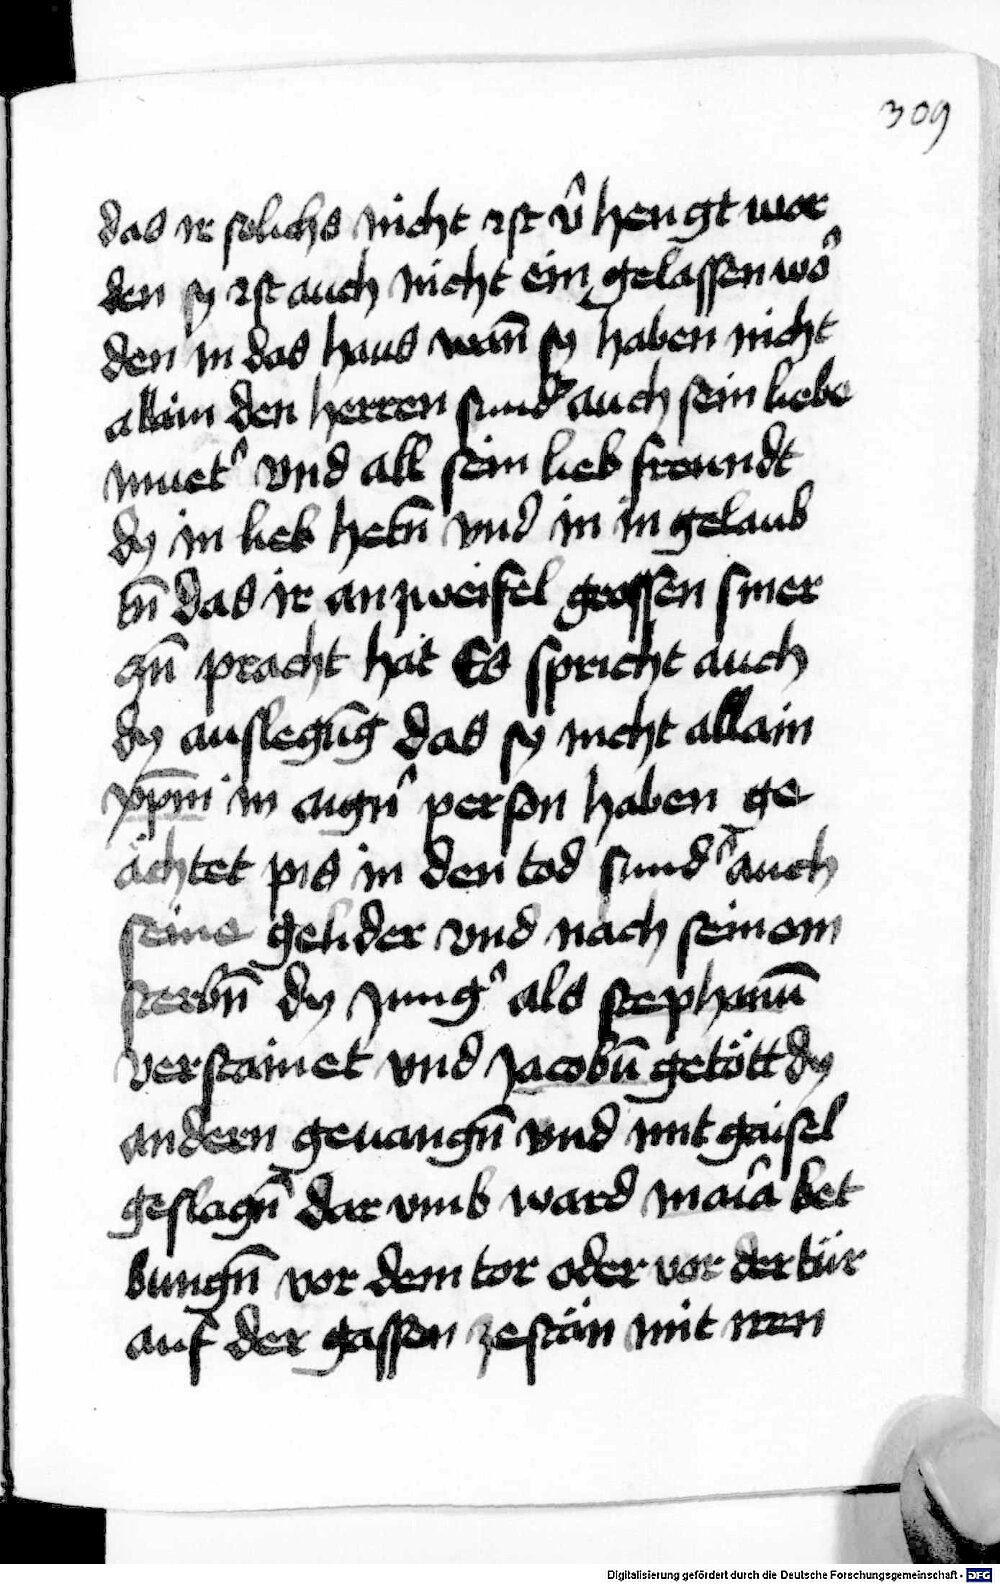 309
das ir solichs nicht ist v̂hengt wor
den sy ist auch nicht ein gelassen wo᷑
den in das haus wan̄ sy haben nicht
allain den herren sund᷑ auch sein liebe
muet᷑ vnd all sein lieb freundt
dy in lieb hetn̄ vnd in in gelaub
tn̄ das ir an zweifel grossen smer
czn̄ pracht hat Es spricht auch
dy auslegūg das sy nicht allain
xp̄m in aign᷑ person haben ge
ächtet pis in den tod sund᷑ auch
seine gelider vnd nach seinem
sterbn̄ dy Jung᷑ als stephanū
verstainet vnd Jacobū getött dy
andern geuangn̄ vnd mit gaisel
geslagn̄ dar vmb ward maīa bet
bungn̄ vor dem tor oder vor der tür
auf der gassen zestän mit iren
Digitalisierung gefördert durch die Deutsche Forschungsgemeinschaft - DFG